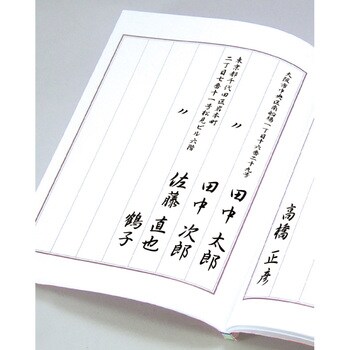 大阪市中央区南船場一丁目十六番二十九号
高橋 正彦
〃
田中 太郎
東京都千代田区岩本町
二丁目七番十一号松見ビル六階
田中 次郎
〃
佐藤 直也
鶴子